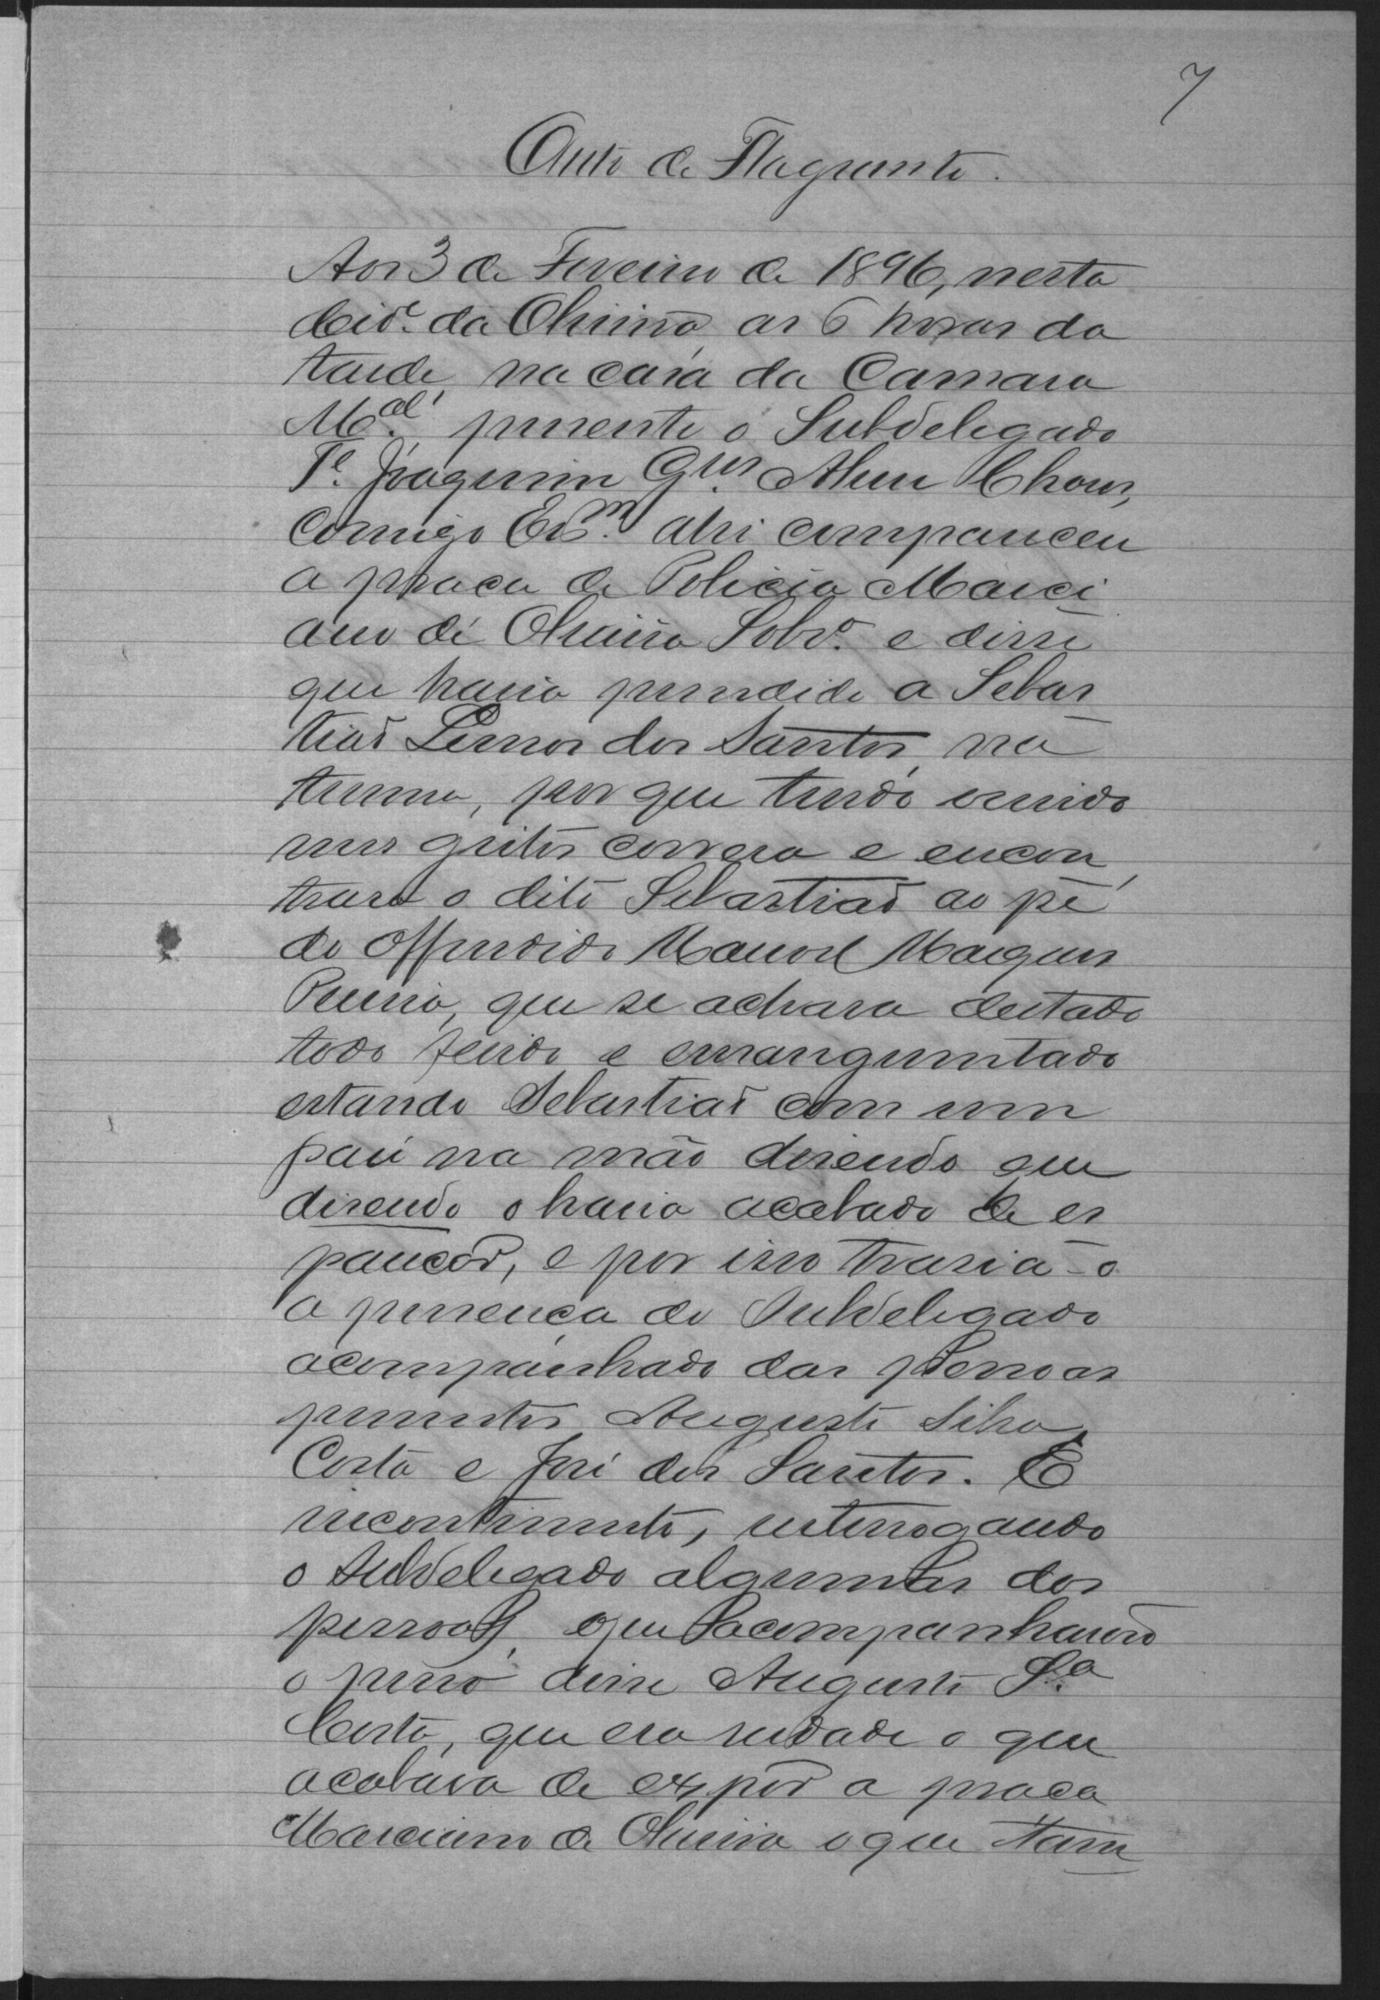 7
Auto de Flagrante.
Aos 3 de Fevereiro de 1896, nesta
Cid.e da Oliveira as 6 horas da
tarde, na casa da Camara
M.al, presente o Subdelegado
T.e Joaquim G.es Alves Chaves,
Comigo Es.m ahi compareceu
a praca de Policia Marci
ano de Oliveira Sobr.o e disse
que havia prendido a Sebas
tiaõ Lemos dos Santos, na
turma, por que tendo ouvido
uns gritos correra e encon
trara o dito Sebastiaõ ao pé
do offendido Manoel Marques
Pereira, que se achava deitado
todo ferido e ensanguentado
estando Sebastiaõ com um
pau na mão disendo que
disendo o havia acabado de es
pancar, e por isso trasia-o
a presença do Subdelegado
acompanhado das pessoas
presentes Augusto Silva
Costa e José dos Santos. E
incontinente, interrogando
o Subdelegado algumas dos
pessoas, que acompanharaõ
o preso disse Augusto S.a
Costa, que era verdade o que
acabava de expôr a praca
Marciano de Oliveira o que tam